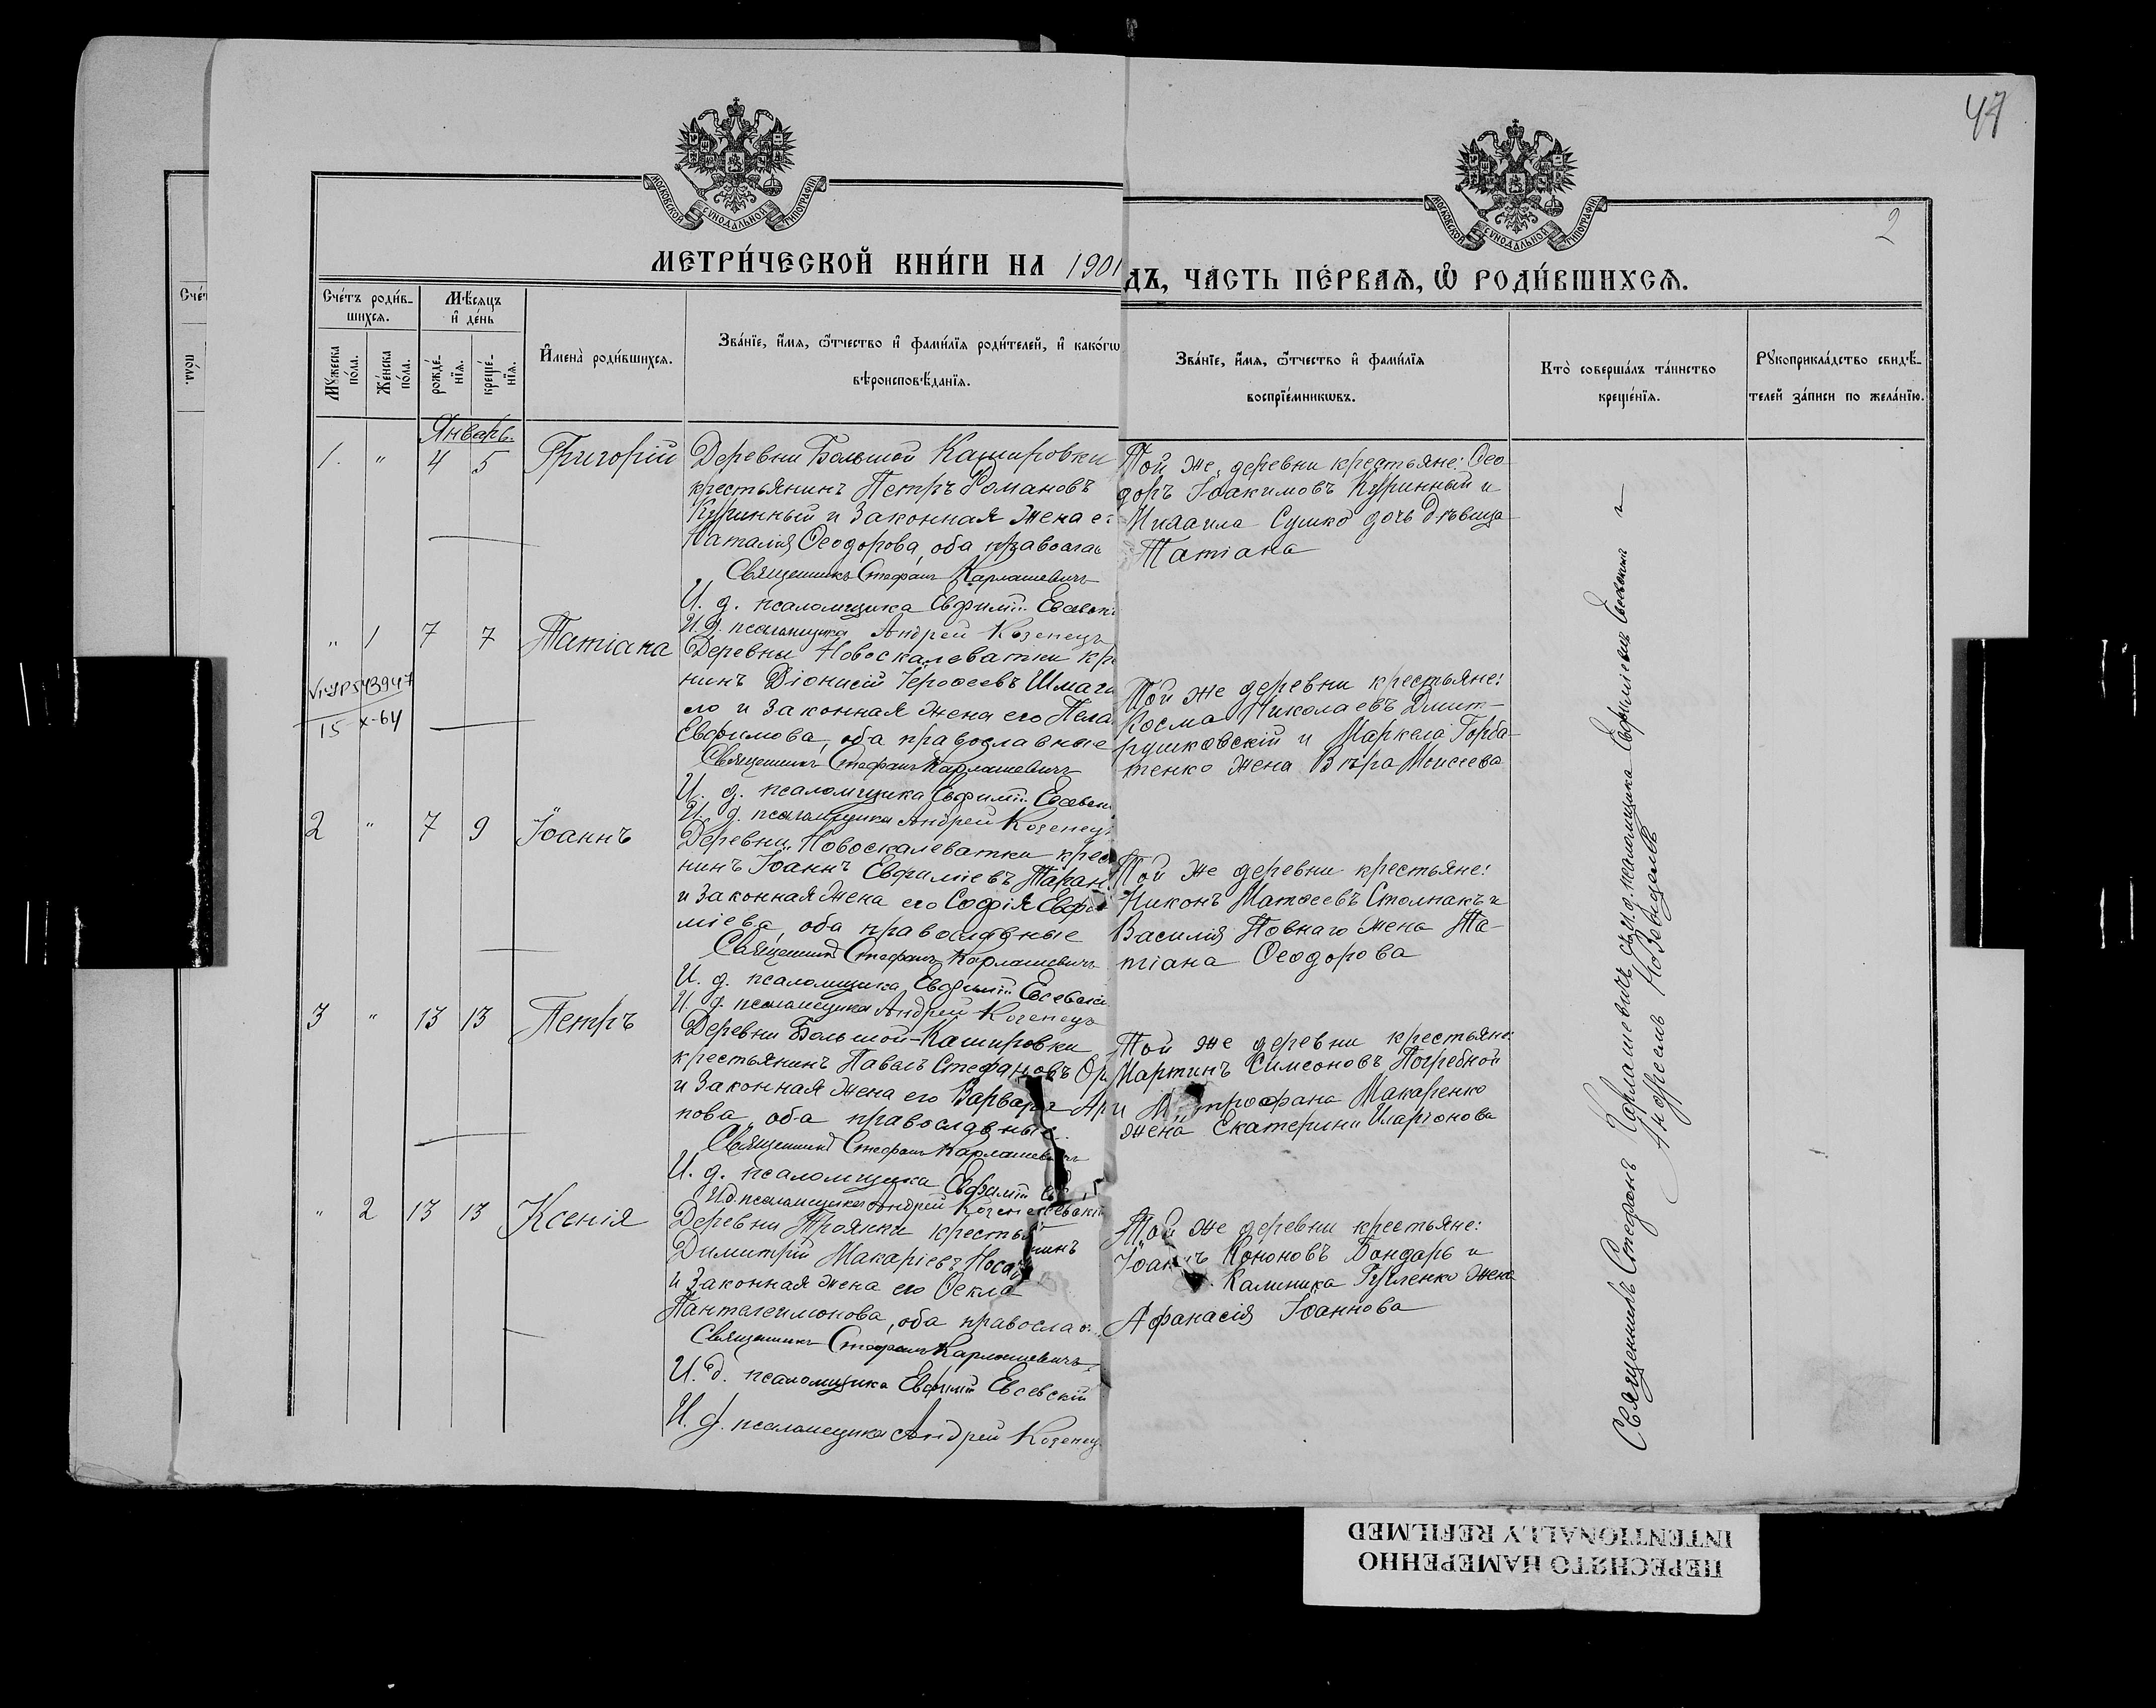 47
2
МОСКОВСКОЙ СѴНОДАЛЬНОЙ ТИПОГРАФІИ
МОСКОВСКОЙ СѴНОДАЛЬНОЙ ТИПОГРАФІИ
МЕТРИ́ЧЕСКОЙ КНИ́ГИ НА 1901
ДЪ, ЧАСТЬ ПЕ́РВАѦ, Ѽ РОДИ́ВШИХСѦ.
Сче́тъ роди́в-
шихсѧ.
Мꙋжеска по́ла.
Же́нска по́ла.
Мѣсѧцъ
и҆ де́нь
рожде́-
нїѧ.
креще́-
нїѧ.
И҆мена̀ роди́вшихсѧ.
Зва́нїе, и҆́мѧ, ѻ҆́тчество и҆ фами́лїѧ роди́телей, и҆ како́гѡ
вѣроисповѣ́данїѧ.
Зва́нїе, и҆́мѧ, ѻ҆́тчество и҆ фами́лїѧ
воспрїе́мникѡвъ.
Кто̀ соверша́лъ та́инство
креще́нїѧ.
Рꙋкоприкла́дство свидѣ́-
телей за́писи по жела́нїю.
Январь.
1. " 4 5 Григорій
Деревни Большой Кашировки
крестьянинъ Петръ Романовъ
Куринный и законная жена е
Наталія Ѳеодорова, оба правосла
Священникъ Стефанъ Карлашевичъ
И. д. псаломщика Евфимій Евсевск
И. д. псаломщика Андрей Козенецъ
Той же деревни крестьяне: Ѳео-
доръ Іоакимовъ Куринный и
Михаила Сушко дочь дѣвица
Татіана
" 1 7 7 Татіана
15 X-64
Деревни Новоскалеватки кре
нинъ Діонисій Іероѳеевъ Шмаги
ло и законная жена его Пела
Евфимова, оба православные
Священникъ Стефанъ Карлашевичъ
И. д. псаломщика Евфимій Евсевск
И. д. псаломщика Андрей Козенец
Той же деревни крестьяне:
Косма Николаевъ Дмит-
рушковскій и Маркела Горба-
тенко жена Вѣра Моисеева
2 " 7 9 Іоаннъ
Деревни Новоскалеватки крес
нинъ Іоаннъ Евфиміевъ Таран
и законная жена его Софія Евфи
міева, оба православные
Священникъ Стефанъ Карлашевичъ
И. д. псаломщика Евфимій Евсевск
И. д. псаломщика Андрей Козенецъ
Той же деревни крестьяне:
Никонъ Матѳеевъ Столпакъ и
Василія Повнаго жена Та-
тіана Ѳеодорова
3 " 13 13 Петръ
Деревни Большой-Кашировки
крестьянинъ Павелъ Стефановъ Ор
и законная жена его Варвара Ари
пова, оба православные.
Священникъ Стефанъ Карлашевичъ
И. д. псаломщика Евфимій
И. д. псаломщика Андрей
Той же деревни крестьяне
Мартинъ Симеоновъ Погребной
и Митрофана Макаренко
жена Екатерина Иларіонова
" 2 13 13 Ксенія
Деревни Троянки крестья нинъ
Димитрій Макаріевъ
и законная жена его Ѳекла
Пантелеимонова, оба правосла
Священникъ Стефанъ Карлашевичъ
И. д. псаломщика Евфимій Евсевскій
И. д. псаломщика Андрей Козенец
Той же деревни крестьяне:
Іоаннъ Кононовъ Бондарь и
Калиника Гуленко жена
Афанасія Іоаннова
Священникъ Стефанъ Карлашевичъ съ и. д. псаломщика Евфиміемъ Евсевскимъ и
Андреемъ
ПЕРЕСНЯТО НАМЕРЕННО
INTENTIONALLY REFILMED
Сче́т
по́ла.